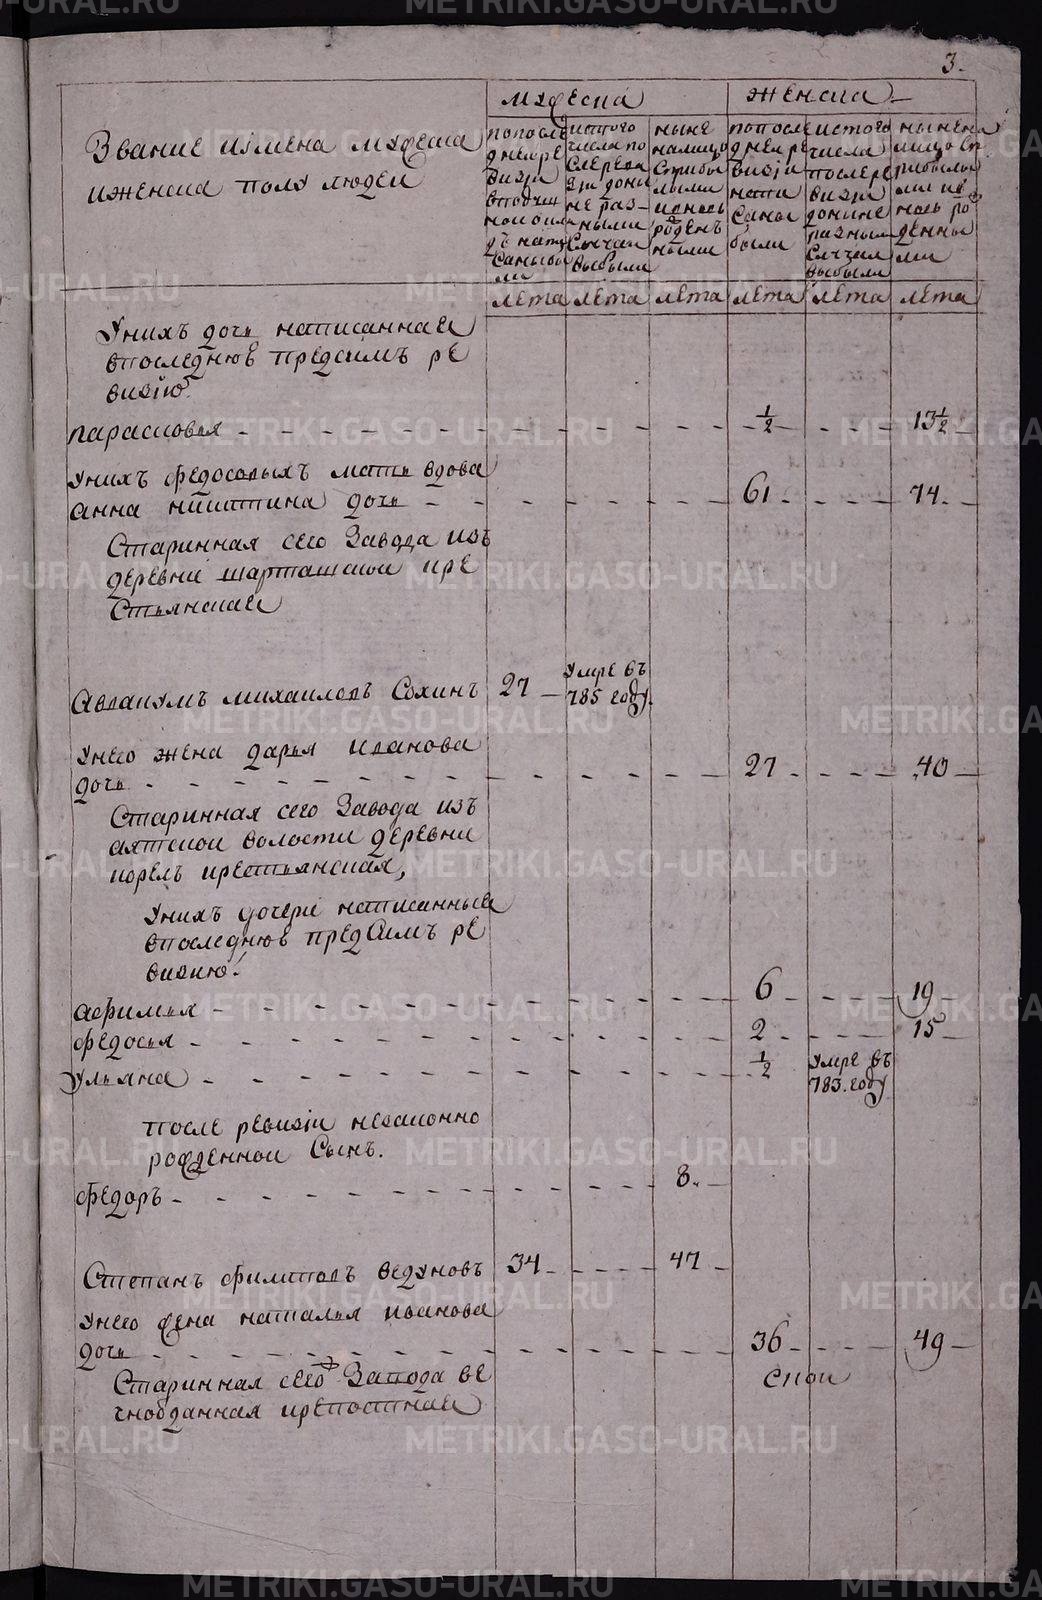 3.
мужеска
женска
Звание иимена мужеска
иженска полу людеи
попосле
днеире
визiи
вподуш
номокла
дѣ напи
саны бы
ли
истого
числа по
слеревi
зiи дони
не раз-
ными
случаи
выбыли
ныне
налицо
сприбы
лыми
ивновь
рожден
ными
попосле
днеире
визiи
напи
саны
были
истого
числа
послере
визiи
донине
разным
случаи
выбыли
ныне на
лицо сп
рибылы
ми ив
новь ро
жденны
ми
лета лета лета лета лета лета
Унихъ дочь написанная
впоследнюю предсимъ ре
визiю
парасковья - 1/2 - 13 1/2
Унихъ федосовыхъ мать вдова
анна никитина дочь - 61 - 74
Старинная сего завода изъ
деревни шарташскои кре
стьянская
Аввакумъ михаиловъ Сохинъ 27 - умре въ
785 году.
Унего жена дарья иванова
дочь - 27 - 40
Старинная сего завода изъ
аятскои волости деревни
корелъ крестьянская,
Унихъ дочери написанные
впоследнюю предсимъ ре
визию:
афимья - 6 - 19
федосья - 2 - 15
ульяна - 1/2 умре въ
783. году
после ревизiи незаконно
рожденнои сынъ.
федоръ - 8. -
Степанъ филиповъ ведуновъ 34 - 47 -
Унего жена наталья иванова
дочь - 36 - 49 -
Старинная сего завода ве
чноотданная крепостная
METRIKI.GASO-URAL.RU